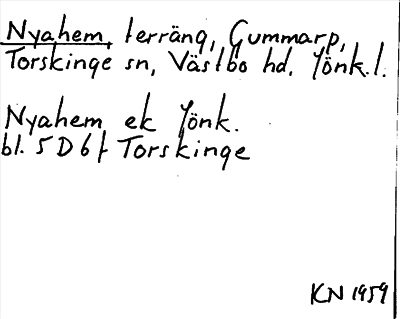 Nyahem, terräng, Gummarp,
Torskinge sn, Västbo hd, Jönk.l.
Nyahem ek Jönk.
bl. 5D6f Torskinge
KN 1959